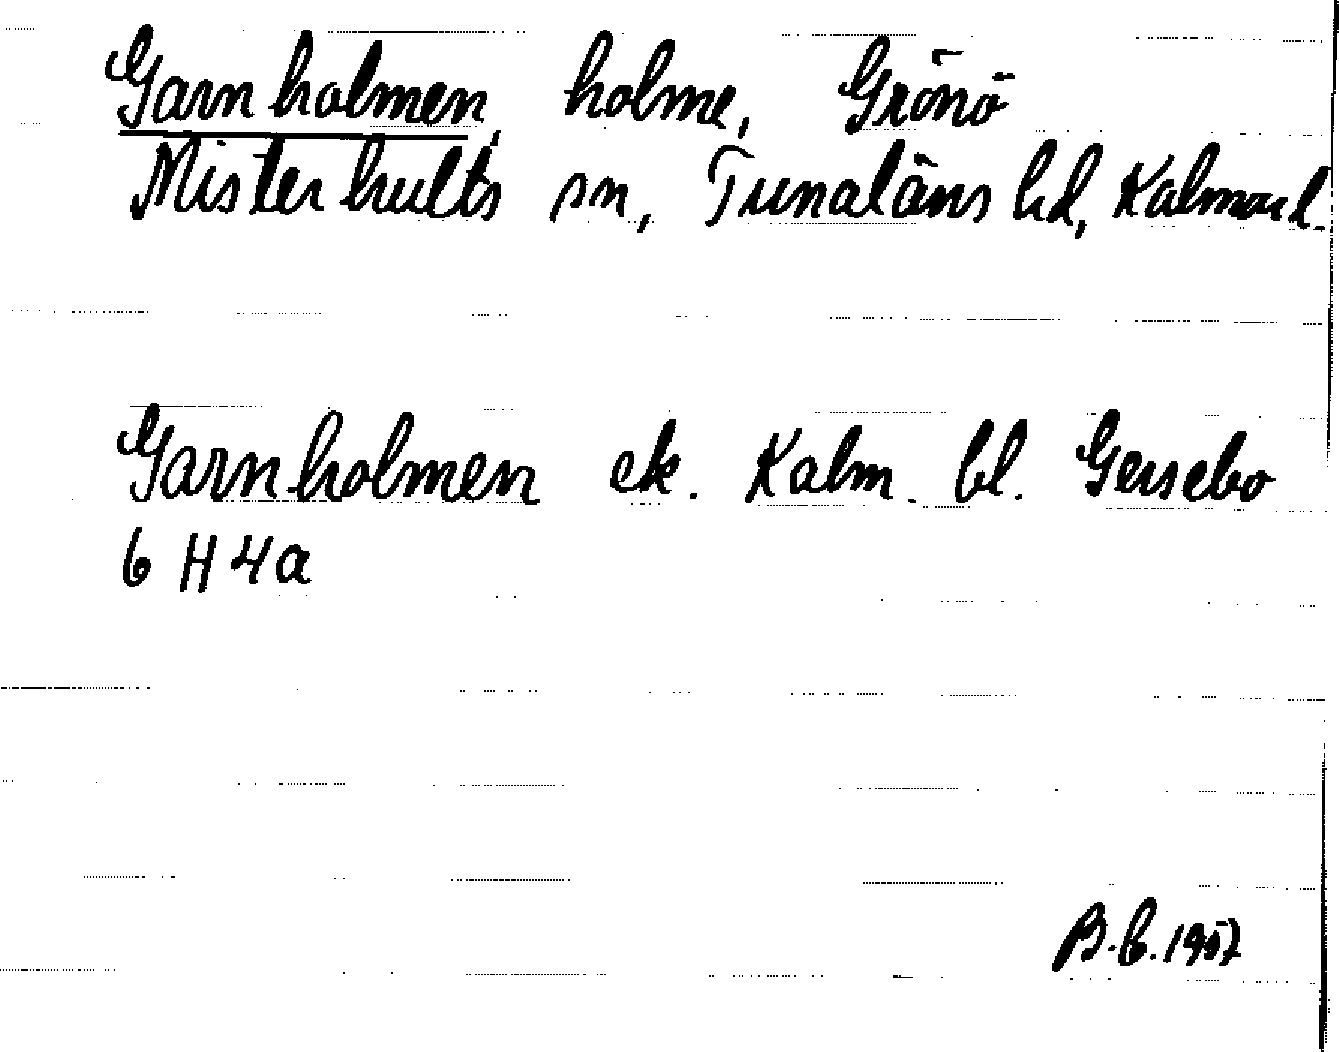 Garnholmen, holme, Grönö
Misterhults sn, Tunaläns hd, Kalmar l.
Garnholmen ek. Kalm. bl. Gersebo
6 H 4a
B.E. 1957